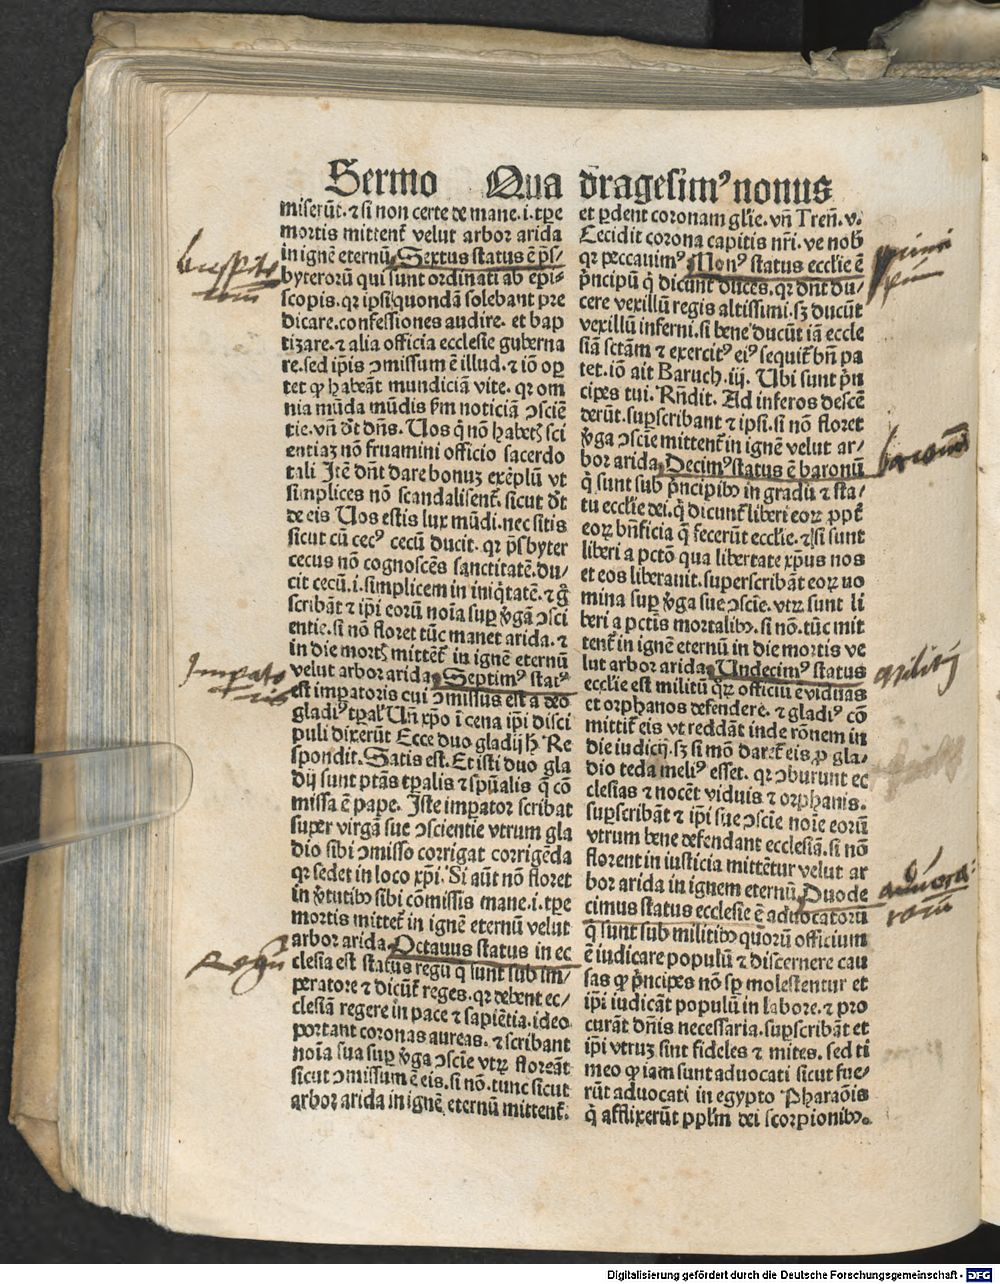 Sermo Quadragesimꝰ nonus
miserūt. ⁊ si non certe de mane. i. tp̄e
mortis mittent᷑ velut arbor arida
in ignē eternū Sextus status ē p̄s/
byterorū qui sunt ordinati ab epi-
scopis. qr ipsi quondā solebant pre
dicare. confessiones audire. et bap
tizare. ⁊ alia officia ecclesie guberna
re. sed ip̄is ↄmissum ē illud. ⁊ iō opꝫ
tet ꝙ habeāt mundiciā vite. qr om
nia mūda mūdis ẜm noticiā ↄsciē
tie. vn̄ dt̄ dn̄s. Uos q̄ nō habetꝭ sci
entiaꝫ nō fruamini officio sacerdo
tali Itē dn̄t dare bonuꝫ exēplū vt
simplices nō scandalisent᷑. sicut dt̄
de eis Uos estis lux mūdi. nec sitis
sicut cū cecꝰ cecū ducit. qr p̄sbyter
cecus nō cognoscēs sanctitatē. du/
cit cecū. i. simplicem in iniq̇tatē. ⁊ g̊
scribāt ⁊ ip̄i eorū noīa suꝑ v̓gā ↄsci
entie. si nō floret tūc manet arida. ⁊
in die mortꝭ mittēt᷑ in ignē eternū
velut arbor arida Septimꝰ statꝰ
est imꝑatoris cui ↄmissus est a deo
gladiꝰ tꝑal̓ Un̄ xp̄o ī cena ip̄i disci
puli dixerūt Ecce duo gladij hꝭ Re
spondit. Satis est. Et isti duo gla
dij sunt pt̄ās tꝑalis ⁊ sp̄ualis q̄ cō
missa ē pape. Iste imꝑator scribat
super virgā sue ↄscientie vtrum gla
dio sibi ↄmisso corrigat corrigēda
qr sedet in loco xp̄i. Si aūt nō floret
in v̓tutibꝫ sibi cōmissis mane. i. tp̄e
mortis mittet᷑ in ignē eternū velut
arbor arida Octauus status in ec
clesia est status regū q̇ sunt sub im/
peratore ⁊ dicūt᷑ reges. qr debent ec/
clesiā regere in pace ⁊ sapiētia. ideo
portant coronas aureas. ⁊ scribant
noīa sua suꝑ v̓ga ↄscīe vtrꝫ floreāt
sicut ↄmissum ē eis. si nō. tunc sicut
arbor arida in ignē eternū mittent᷑.
et ꝑdent coronam gl̓ie. vn̄ Tren̄. v.
Cecidit corona capitis nr̄i. ve nob̄
qr peccauimꝰ Nonꝰ status eccl̓ie ē
p̓ncipū q̇ dicunt᷑ duces. qr dn̄t du/
cere vexillū regis altissimi. sꝫ ducūt
vexillū inferni. si bene ducūt iā eccle
siā sctām ⁊ exercitꝰ eiꝰ sequit᷑ bn̄ pa
tet. iō ait Baruch. iij. Ubi sunt p̓n
cipes tui. Rn̄dit. Ad inferos descē
derūt. suꝑscribant ⁊ ipsi. si nō floret
v̓ga ↄscīe mittent᷑ in ignē velut ar-
bor arida Decimꝰ status ē baronū
q̇ sunt sub p̓ncipibꝫ in gradū ⁊ sta/
tu eccl̓ie dei. q̇ dicunt᷑ liberi eoꝝ ꝓpt᷑
eoꝝ bn̄ficia q̄ fecerūt eccl̓ie. ⁊ si sunt
liberi a pctō qua libertate xp̄us nos
et eos liberauit. superscribāt eoꝝ no
mina suꝑ v̓ga sue ↄscīe. vtꝝ sunt li
beri a pctīs mortalibꝫ. si nō. tūc mit
tent᷑ in ignē eternū in die mortis ve
lut arbor arida Undecimꝰ status
ecclie est militū qꝝ officiū ē viduas
et orphanos defendere. ⁊ gladiꝰ cō
mittit᷑ eis vt reddāt inde rōnem in
die iudicij. sꝫ si mō daret᷑ eis ꝓ gla-
dio teda meliꝰ esset. qr ↄburunt ec
clesias ⁊ nocēt viduis ⁊ orphanis.
suꝑscribāt ⁊ ip̄i sue ↄscīe noīe eorū
vtrum bene defendant ecclesiā. si nō
florent in iusticia mittētur velut ar
bor arida in ignem eternū Duode
cimus status ecclesie ē aduocatorū
q̇ sunt sub militibꝫ quorū officium
ē iudicare populū ⁊ discernere cau
sas ꝙ p̓ncipes nō sꝑ molestentur et
ip̄i iudicāt populū in labore. ⁊ pro
curāt dn̄is necessaria. suꝑscribāt et
ip̄i vtruꝫ sint fideles ⁊ mites. sed ti
meo ꝙ iam sunt aduocati sicut fue-
rūt aduocati in egypto Pharaōis
q̇ afflixerūt ppl̄m dei scorpionibꝫ.
Imperatoris
Regū
principū
baronū
militū
aduocatorū
Digitalisierung gefördert durch die Deutsche Forschungsgemeinschaft - DFG